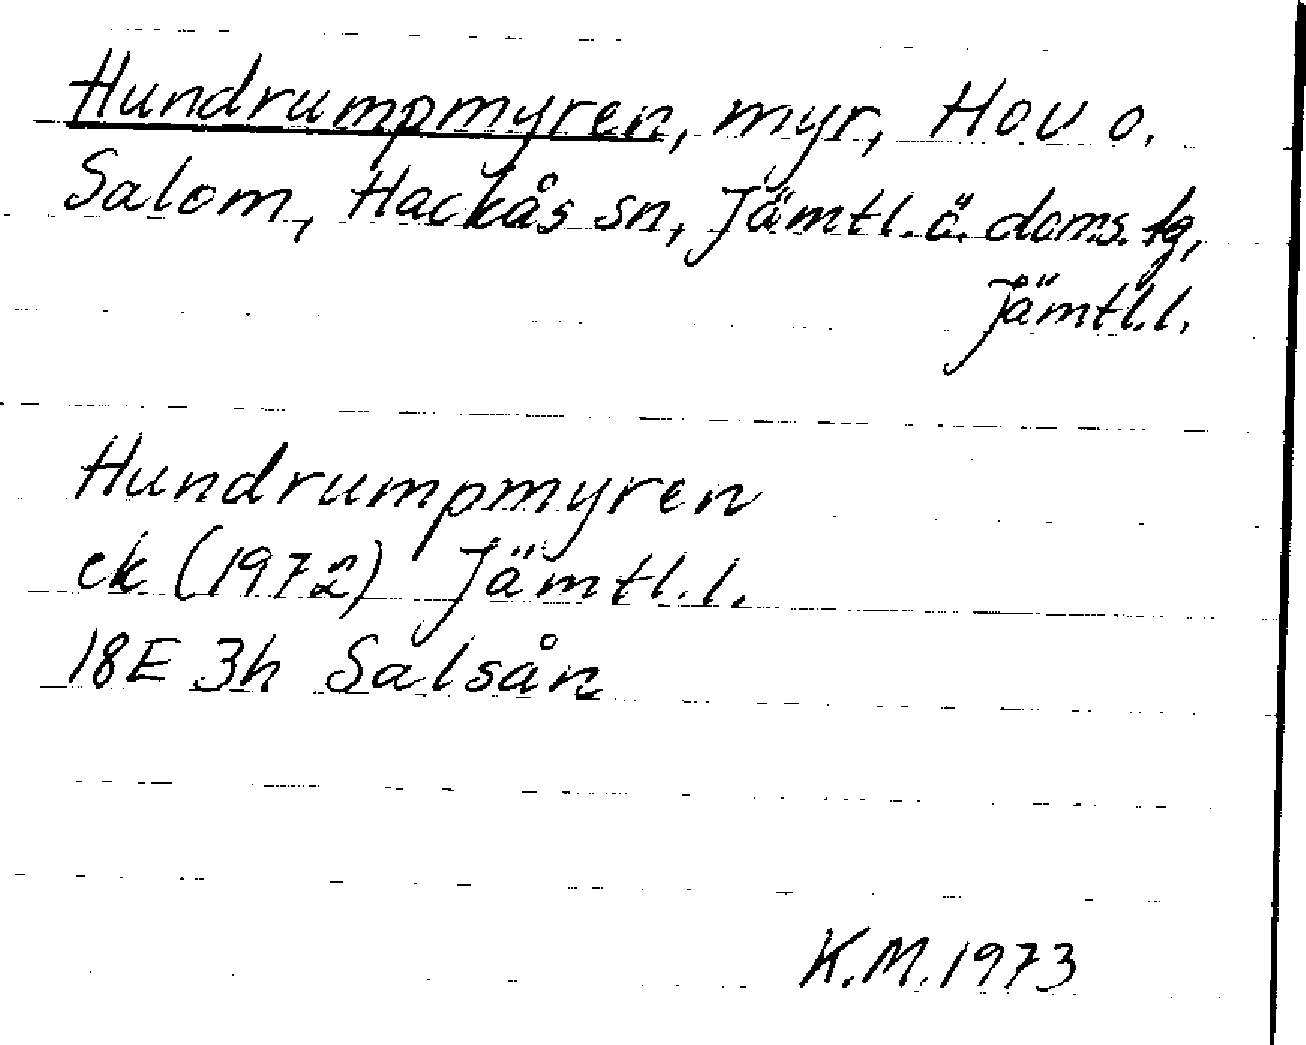 Hundrumpmyren, myr, Hov o.
Salom, Hackås sn, Jämtl. ö. doms. tg,
Jämtl. l.
Hundrumpmyren
ek (1972) Jämtl. l.
18E 3h Salsån
K.M. 1973